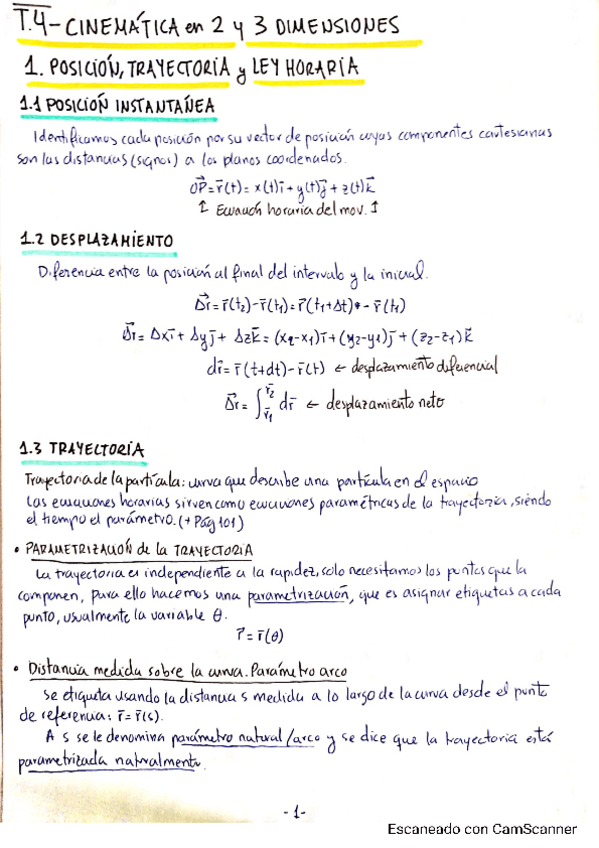 T.4- CINEMÁTICA en 2 y 3 DIMENSIONES
1. POSICIÓN, TRAYECTORIA y LEY HORARIA
1.1 POSICIÓN INSTANTÁNEA
Identificamos cada posición por su vector de posición cuyas componentes cartesianas
son las distancias (signos) a los planos coordenados.
O⃗P = r̄(t) = x(t)ī + y(t)j̄ + z(t)k̄
↑ Ecuación horaria del mov. ↑
1.2 DESPLAZAMIENTO
Diferencia entre la posición al final del intervalo y la inicial.
Δ⃗r = r̄(t₂) - r̄(t₁) = r̄(t₁+Δt) - r̄(t₁)
Δ⃗r = Δxī + Δyj̄ + Δzk̄ = (x₂-x₁)ī + (y₂-y₁)j̄ + (z₂-z₁)k̄
dr̄ = r̄(t+dt) - r̄(t) ← desplazamiento diferencial
Δ⃗r = ∫r̄₁^r̄₂ dr̄ ← desplazamiento neto
1.3 TRAYECTORIA
Trayectoria de la partícula: curva que describe una partícula en el espacio
Las ecuaciones horarias sirven como ecuaciones paramétricas de la trayectoria, siendo
el tiempo el parámetro. (+ Pág 101)
• PARAMETRIZACIÓN de la TRAYECTORIA
La trayectoria es independiente a la rapidez, solo necesitamos los puntos que la
componen, para ello hacemos una parametrización, que es asignar etiquetas a cada
punto, usualmente la variable θ.
r̄ = r̄(θ)
• Distancia medida sobre la curva. Parámetro arco
Se etiqueta usando la distancia s medida a lo largo de la curva desde el punto
de referencia: r̄ = r̄(s).
A s se le denomina parámetro natural/arco y se dice que la trayectoria está
parametrizada naturalmente.
-1-
Escaneado con CamScanner